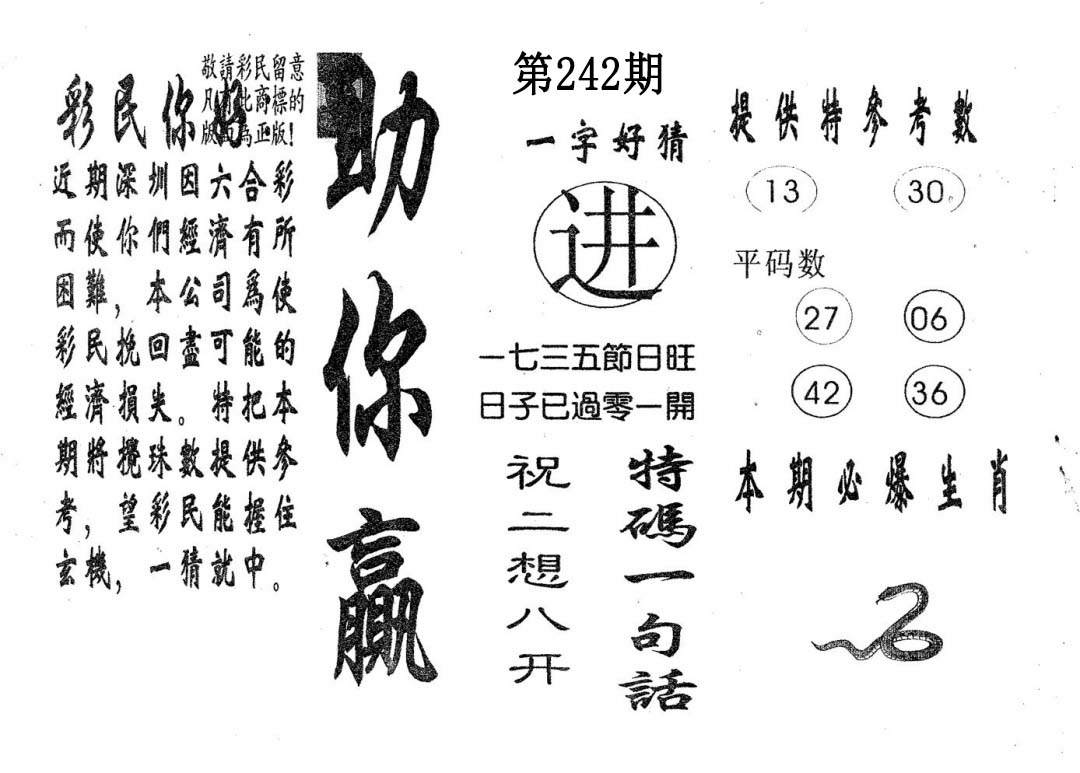 敬請彩民留意
凡有此商標的
版面為正版!
彩民你好
近期深圳因六合彩
而使你們經濟有所
困難，本公司爲使
彩民挽回盡可能的
經濟損失。特把本
期將攪珠數提供參
考，望彩民能握住
玄機，一猜就中。
助你贏
第242期
一字好猜
进
一七三五節日旺
日子已過零一開
特碼一句話
祝二想八开
提供特參考數
13 30
平码数
27 06
42 36
本期必爆生肖